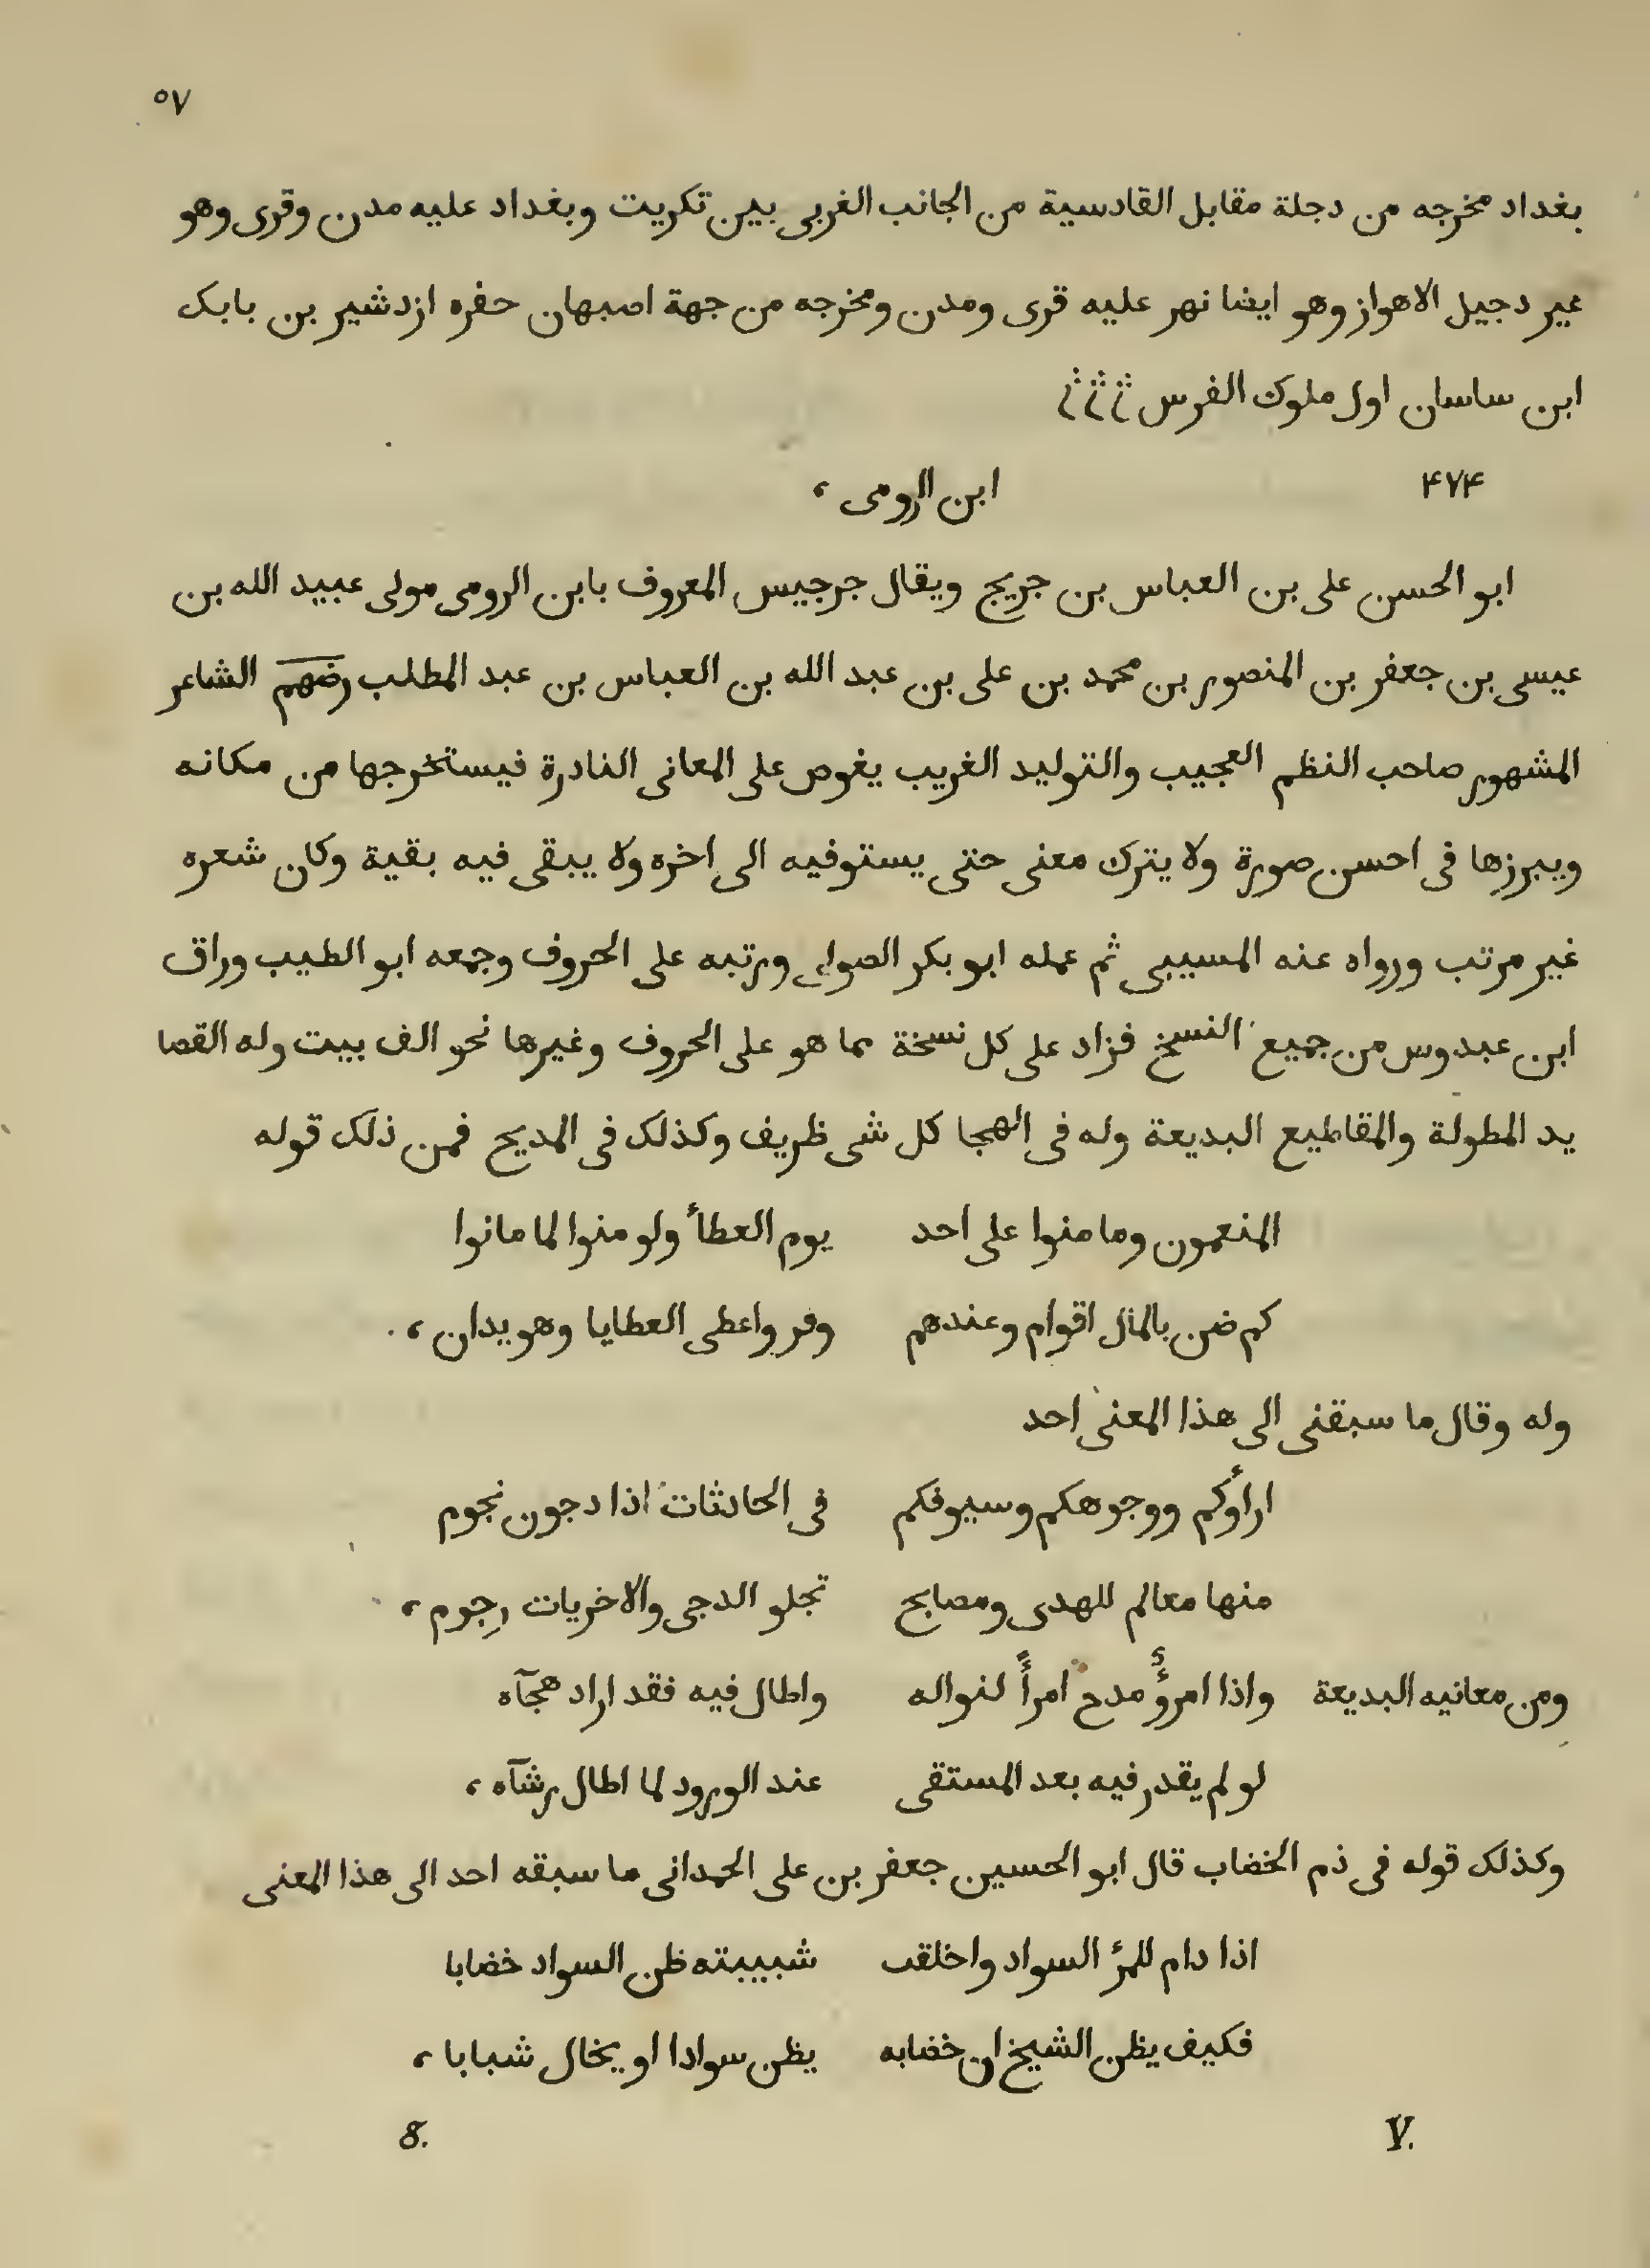 ٥٧
بغداد مخرجه من دجلة مقابل القادسية من الجانب الغربى بين تكريت وبغداد عليه مدن وقرى وهو
غير دجيل الاهواز وهو ايضا نهر عليه قرى ومدن ومخرجه من جهة اصبهان حفره ازدشير بن بابک
ابن ساسان اول ملوك الفرس
۴٧۴ ابن الرومى،
ابو الحسن على بن العباس بن جريج ويقال جرجيس المعروف بابن الرومى مولى عبيد الله بن
عيسى بن جعفر بن المنصور بن محمد بن على بن عبد الله بن العباس بن عبد المطلب رضهم الشاعر
المشهور صاحب النظم العجيب والتوليد الغريب يغوص على المعانى النادرة فيستخرجها من مكانه
ويبرزها فى احسن صورة ولا يترك معنى حتى يستوفيه الى اخره ولا يبقى فيه بقية وكان شعره
غير مرتب ورواه عنه المسيبى ثم عمله ابو بكر الصولى ورتبه على الحروف وجمعه ابو الطيب وراق
ابن عبدوس من جميع النسخ فزاد على كل نسخة مما هو على الحروف وغيرها نحو الف بيت وله القصا
يد المطولة والمقاطيع البديعة وله فى الهجا كل شى ظريف وكذلک فى المديح فمن ذلک قوله
المنعمون وما منوا على احد يوم العطأ ولو منوا لما مانوا
كم ضن بالمال اقوام وعندهم وفر واعطى العطايا وهو يدان،
وله وقال ما سبقنى الى هذا المعنى احد
ارأوكم ووجوهكم وسيوفكم فى الحادثات اذا دجون نجوم
منها معالم للهدى ومصابح تجلو الدجى والاخريات رجوم،
ومن معانيه البديعة واذا امرؤٌ مدح امرأً لنواله واطال فيه فقد اراد هجآه
لو لم يقدر فيه بعد المستقى عند الورود لما اطال رشآه،
وكذلک قوله فى ذم الخضاب قال ابو الحسين جعفر بن على الحمدانى ما سبقه احد الى هذا المعنى
اذا دام للمرٔ السواد واخلقت شبيبته ظن السواد خضابا
فكيف يظن الشيخ ان خضابه يظن سوادا او يخال شبابا،
V. 8.